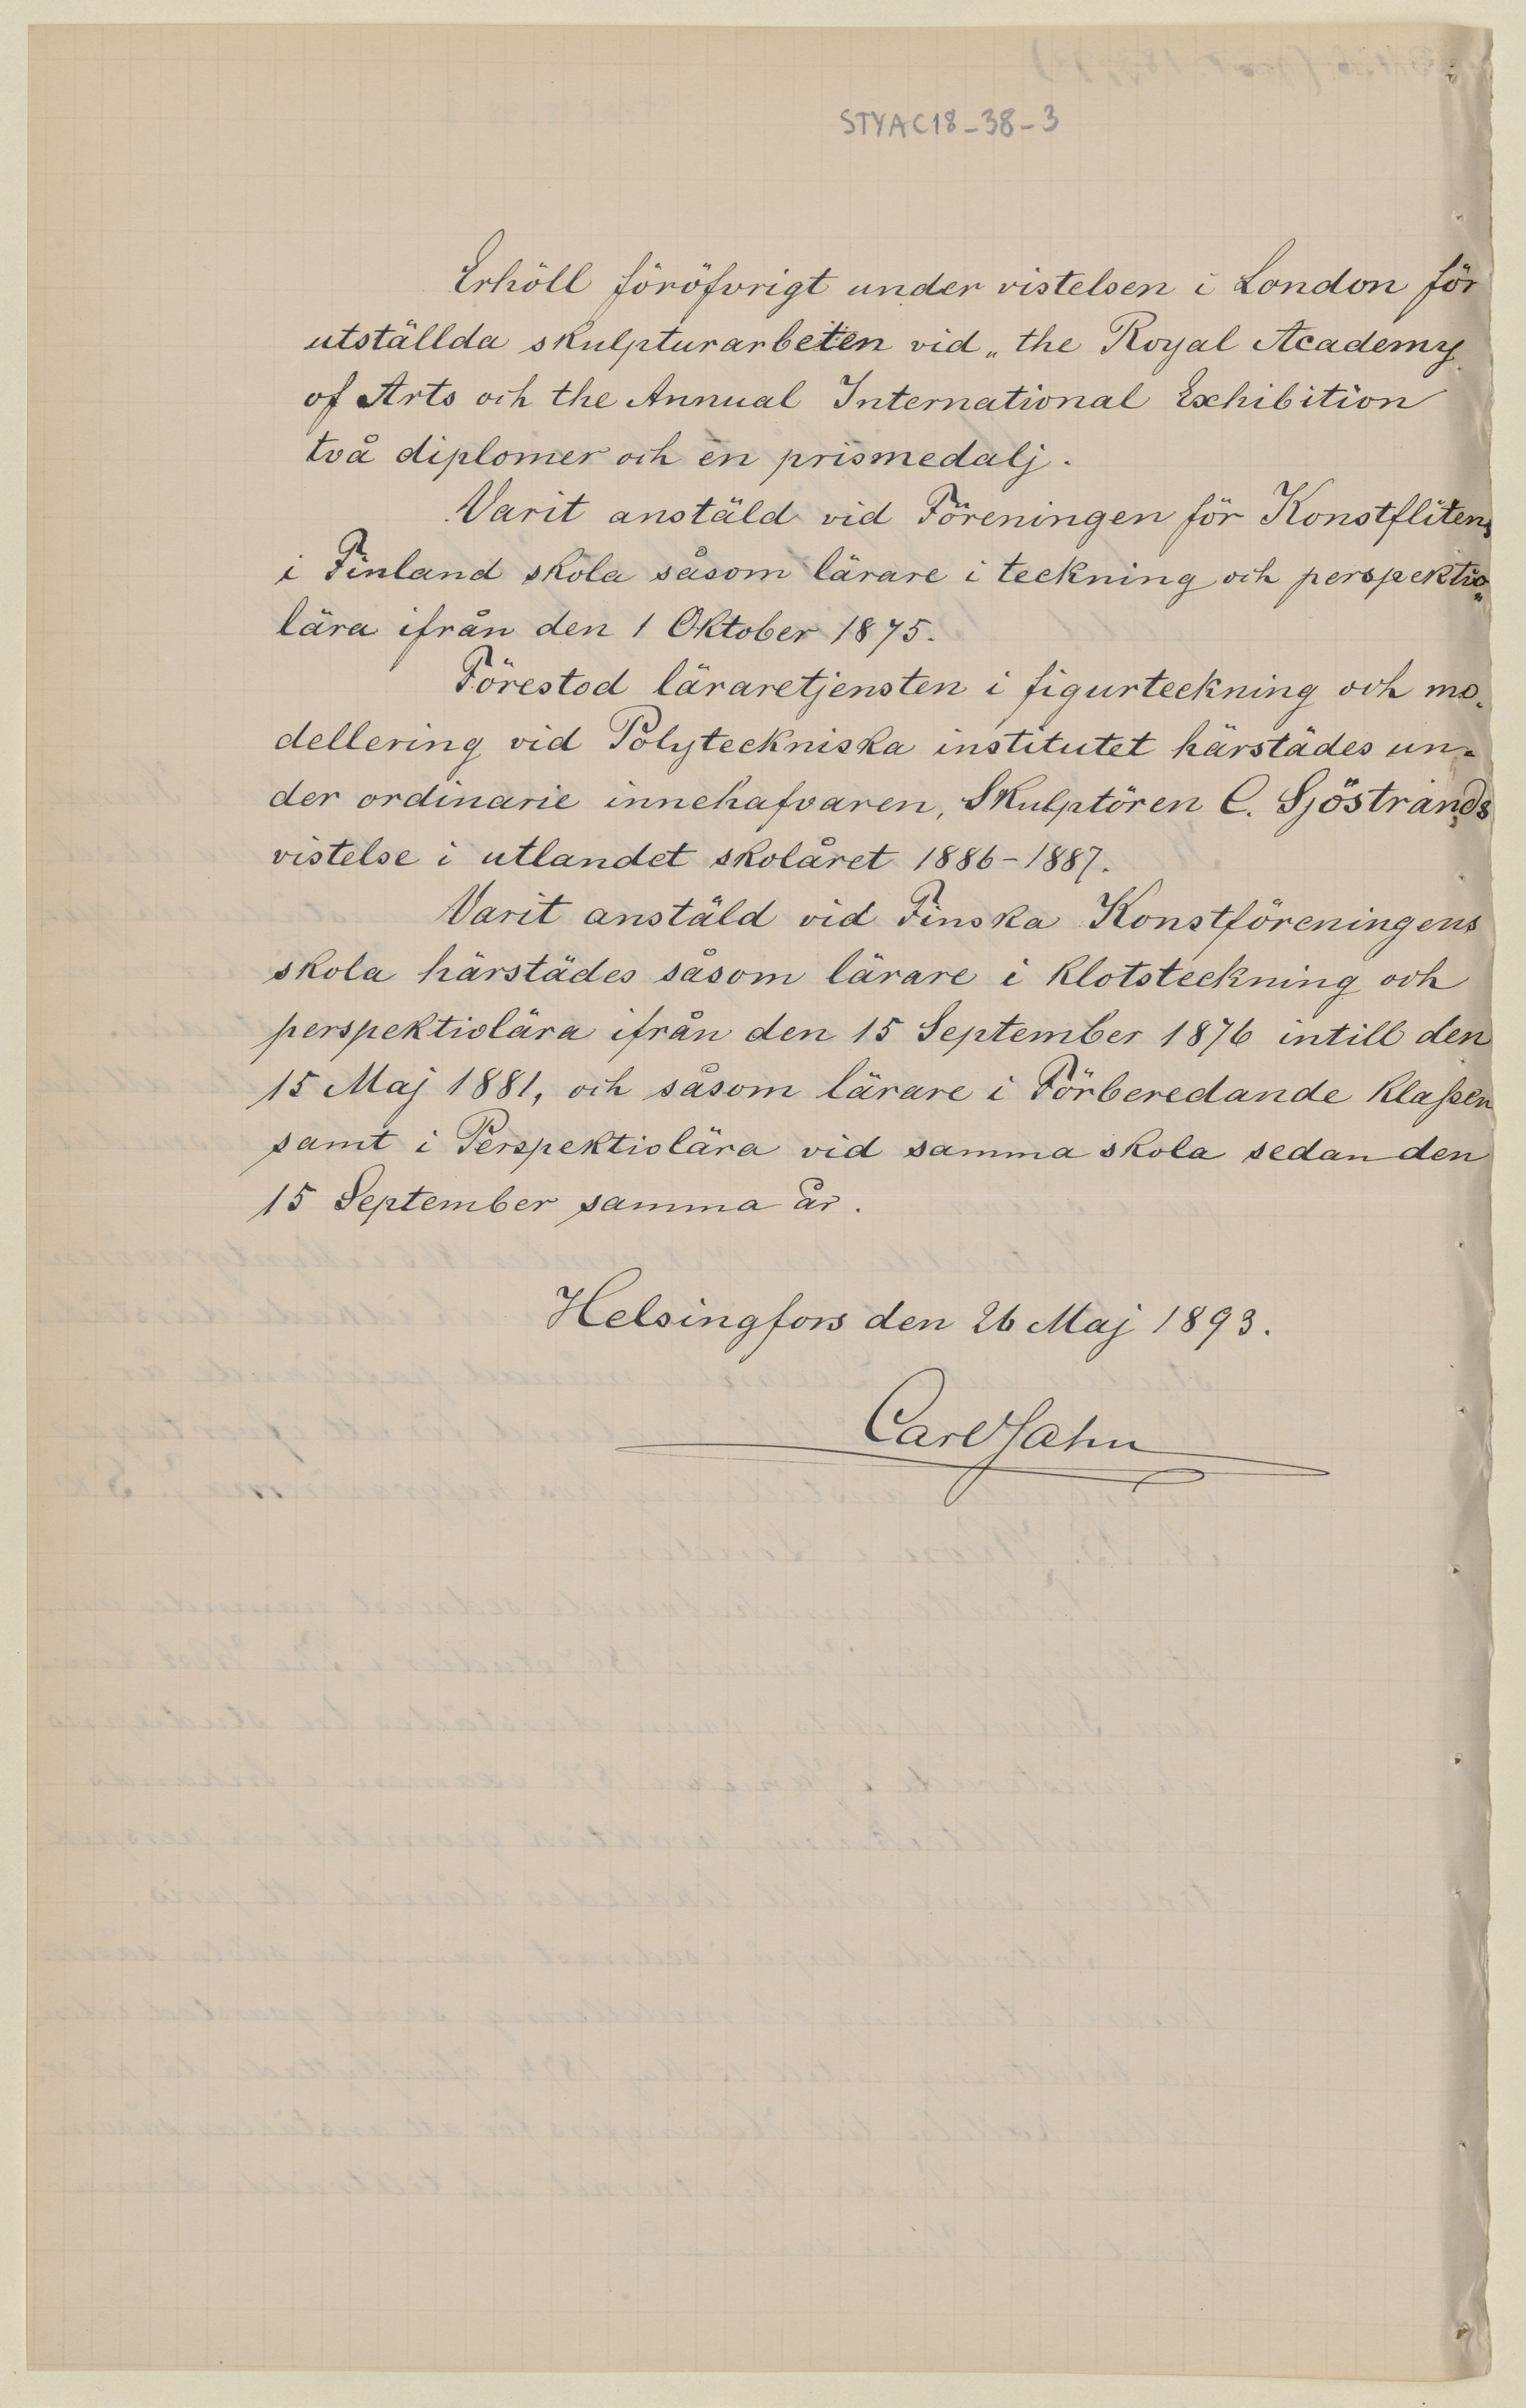 STYAC18-38-3
Erhöll föröfvrigt under vistelsen i London för
utställda skulpturarbeten vid „the Royal Academy
of Arts och the Annual International Exhibition
två diplomer och en prismedalj.
Varit anstäld vid Föreningen för Konstflitens
i Finland skola såsom lärare i teckning och perspektiv„
lära ifrån den 1 Oktober 1875.
Förestod läraretjensten i figurteckning och mo„
dellering vid Polyteckniska institutet härstädes un„
der ordinarie innehafvaren, Skulptören C. Sjöstrands
vistelse i utlandet skolåret 1886-1887.
Varit anstäld vid Finska Konstföreningens
skola härstädes såsom lärare i klotsteckning och
perspektivlära ifrån den 15 September 1876 intill den
15 Maj 1881, och såsom lärare i Förberedande klassen
samt i Perspektivlära vid samma skola sedan den
15 September samma år.
Helsingfors den 26 Maj 1893.
Carl Jahn